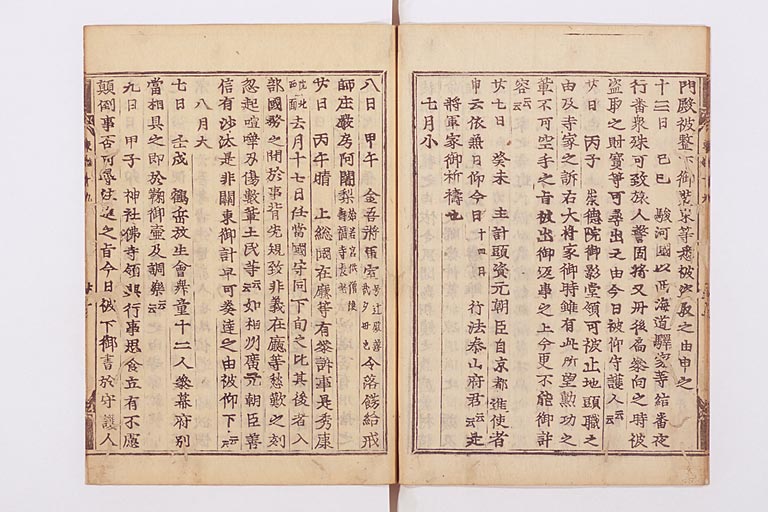 門殿被整下御裝束等悉被盜取之由申之
十三日 己巳 駿河國以西海道驛家等結番夜
行番衆殊可致旅人警固 又丹後局參向之時被
盜取之財寶等可尋出之由今日被仰守護人云云
廿日 丙子 崇德院御影堂領可被止地頭職之
由及寺家之訴右大將家御時雖有此所望勲功之
輩不可空手之旨被出御返事之上今更不能御計
容云云
廿七日 癸未 主計頭資元朝臣自京都進使者
申云依無日仰今日十四日 行法泰山府君云云 是
將軍家御祈禱也
七月小
八日 甲午 金吾將軍室号辻殿善哉夕母也 令落餝給戒
師庄嚴房阿闍梨 供僧 壽福寺長老
廿日 丙午晴 上總國在廳等有參訴事是秀康
院北西面 去月十七日任當國守同下旬之比其後者入
部國務之間於事背先規致非義在廳等愁歎之刻
忽起喧嘩刃傷數輩土民等云云如相州廣元朝臣善
信有沙汰是非關東御計早可奏達之由被仰下云云
八月大
七日 壬戌 鶴岳放生會舞童十二人參幕府別
當相具之即於鞠御壺及調樂云云
九日 甲子 神社佛寺領興行事思食立有不慮
顛倒事否可尋注進之旨今日被下御書於守護人